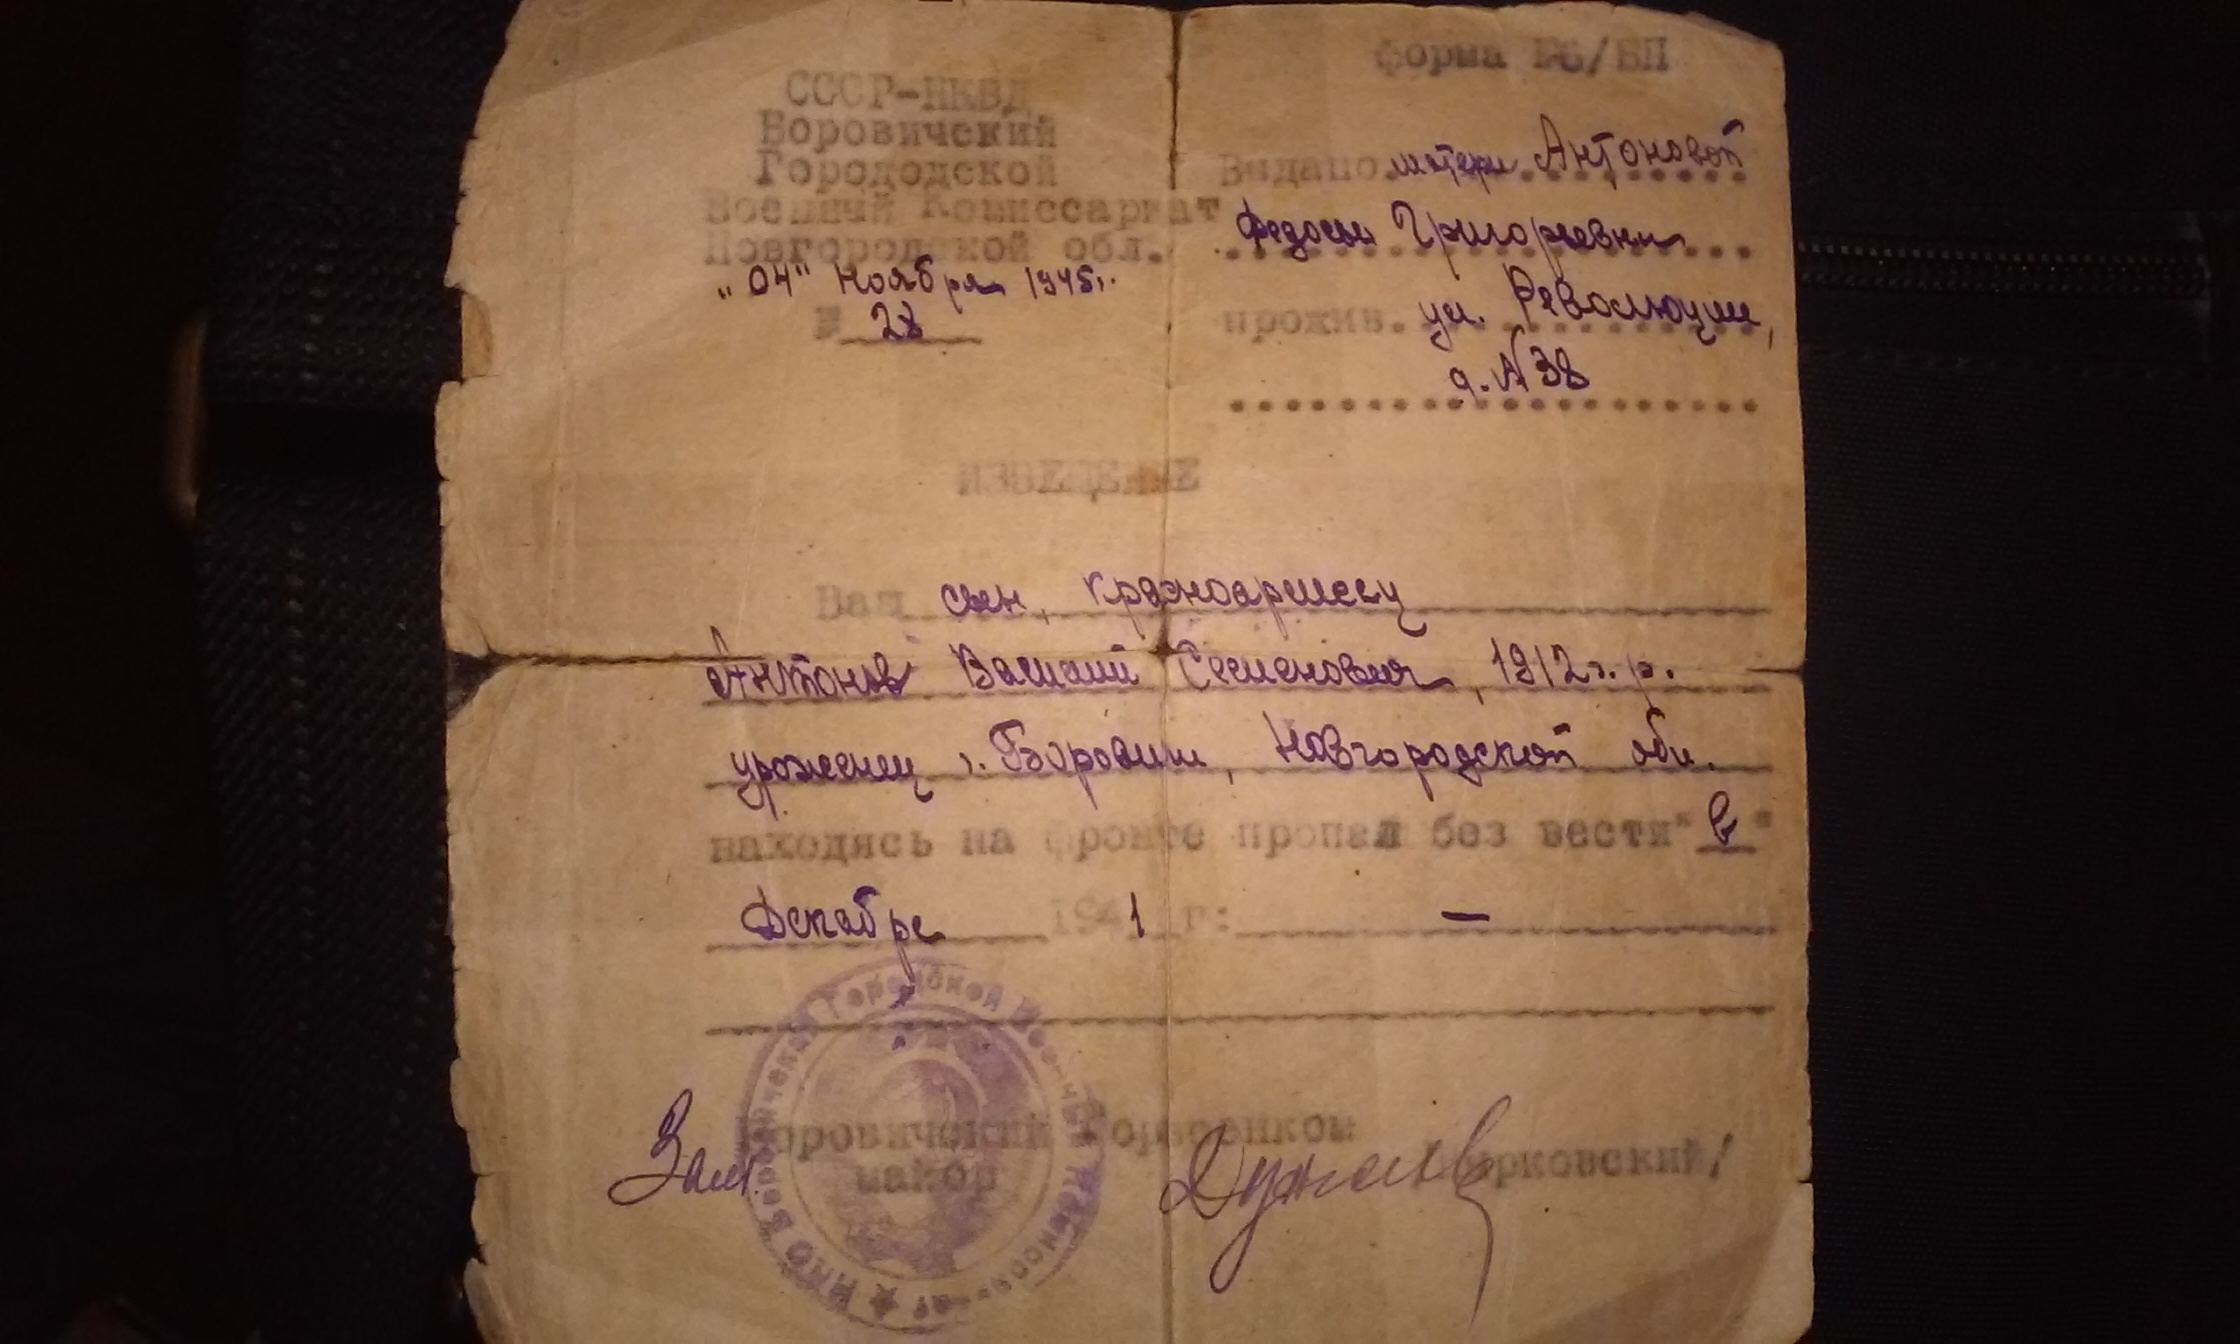 форма №6/БП
СССР-НКВД
Боровичский
Горододской
Военный Комиссариат
Новгородской обл.
"04" Ноября 1945г.
№ 28
Выдано матери Антоновой
Федосьи Григорьевны
прожив. ул. Революции,
д. № 38
ИЗВЕЩЕНИЕ
Ваш сын, красноармеец
Антонов Василий Семенович, 1912 г. р.
уроженец г. Боровичи, Новгородской обл.
находясь на фронте пропал без вести "в"
Декабре 1941 г: —
Зам. Боровичский Горвоенком
майор
рковский/
НКО Боровичский Городской Военный Комиссариат